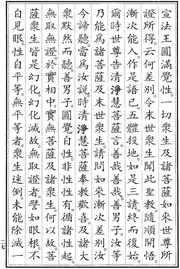 宣法王圓滿覺性一切衆生及諸菩薩如來世尊所
證所得云何差別令末世衆生聞此聖教隨順開悟
漸次能入作是語已五體投地如是三請終而復始
爾時世尊告清淨慧菩薩言善哉善哉善男子汝等
乃能為諸菩薩及末世衆生請問如來漸次差別汝
今諦聽當為汝說時清淨慧菩薩奉教歡喜及諸大
衆默然而聽善男子圓覺自性非性性有循諸性起
無取無證於實相中實無菩薩及諸衆生何以故菩
薩衆生皆是幻化幻化滅故無取證者譬如眼根不
自見眼性自平等無平等者衆生迷倒未能除滅一